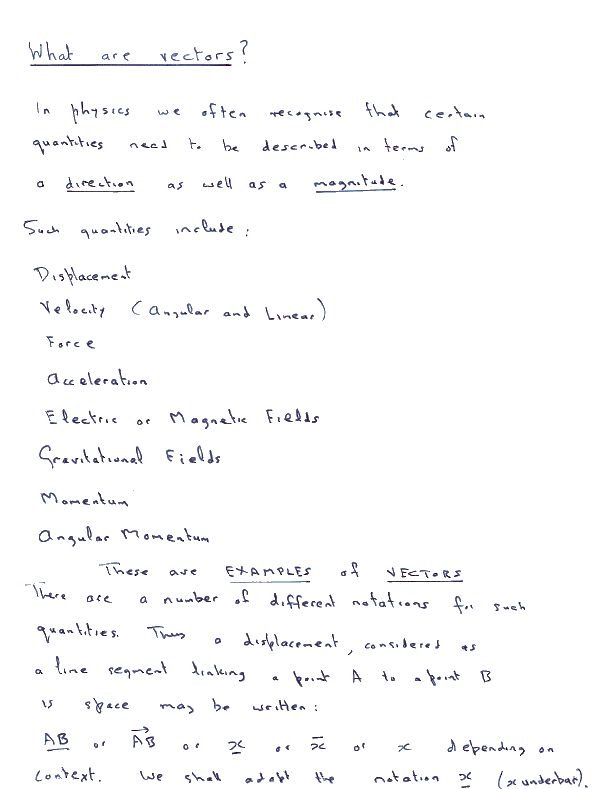 What are vectors?
In physics we often recognise that certain
quantities need to be described in terms of
a direction as well as a magnitude.
Such quantities include:
Displacement
Velocity (Angular and Linear)
Force
Acceleration
Electric or Magnetic Fields
Gravitational Fields
Momentum
Angular Momentum
These are EXAMPLES of VECTORS
There are a number of different notations for such
quantities. Thus a displacement, considered as
a line segment linking a point A to a point B
is space may be written:
A̲B̲ or A⃗B⃗ or x̲ or x̅ or x depending on
context. We shall adopt the notation x̲ (x underbar).